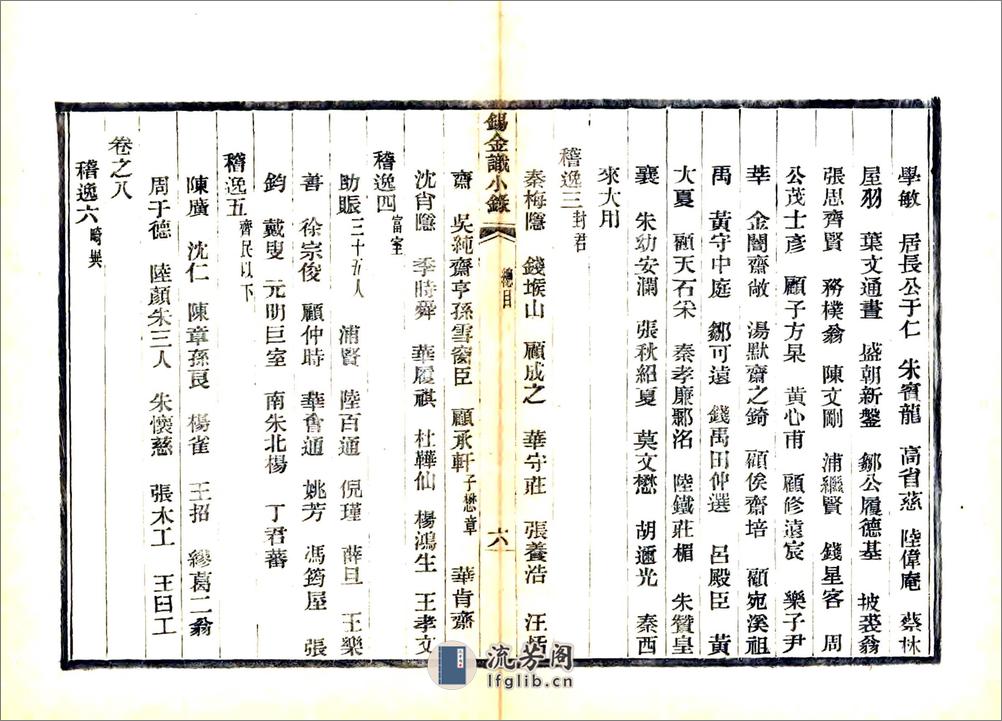 學敏 居長公于仁 朱賓龍 高省慈 陸偉庵 蔡林
屋羽 葉文通晝 盛朝新鏊 鄒公履德基 披裘翁
張思齊賢 務樸翁 陳文剛 浦繼賢 錢星客 周
公茂士彥 顧子方杲 黃心甫 顧修遠宸 樂子尹
莘 金闇齋敞 湯默齋之錡 顧俟齋培 顧宛溪祖
禹 黃守中庭 鄒可遠 錢禹田仲選 呂殿臣 黃
大夏 顧天石采 秦孝廉酆洺 陸鐵莊楣 朱贊皇
襄 朱幼安瀾 張秋紹夏 莫文懋 胡邇光 秦西
來大用
稽逸三封君
秦梅隱 錢堠山 顧成之 華守莊 張養浩 汪
錫金識小錄 總目 六
齋 吳純齋亨孫雪窗臣 顧承軒子懋章 華肯齋
沈肯隱 季時舜 華履祺 杜鞾仙 楊鴻生 王孝文
稽逸四富室
助賑三十五人 浦賢 陸百通 倪瑾 薛旦 王樂
善 徐宗俊 顧仲時 華會通 姚芳 馮筠屋 張
鈞 戴叟 元明巨室 南朱北楊 丁君蕃
稽逸五齊民以下
陳廣 沈仁 陳章孫良 楊雀 王招 繆葛二翁
周于德 陸顏朱三人 朱懷慈 張木工 王臼工
卷之八
稽逸六畸異
流芳阁
lfglib.cn